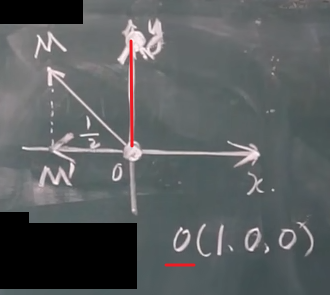 M
y
1/2
M'
0
x.
0(1,0,0)